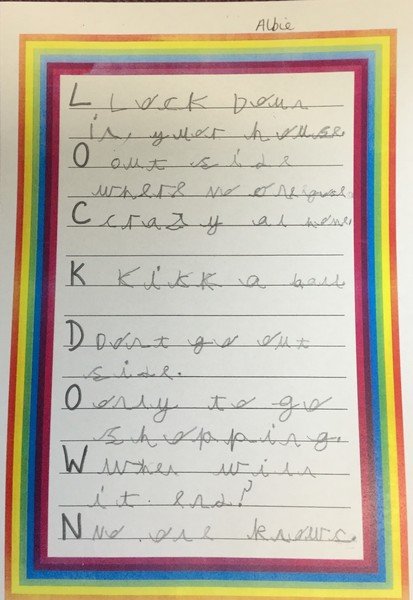 Albie
L Lock Down
in, your house.
O out side
where no one goes.
C crazy at home.
K Kikk a ball
D Dont go out
side.
O only to go
shopping.
W When will
it end?
N No one knows.